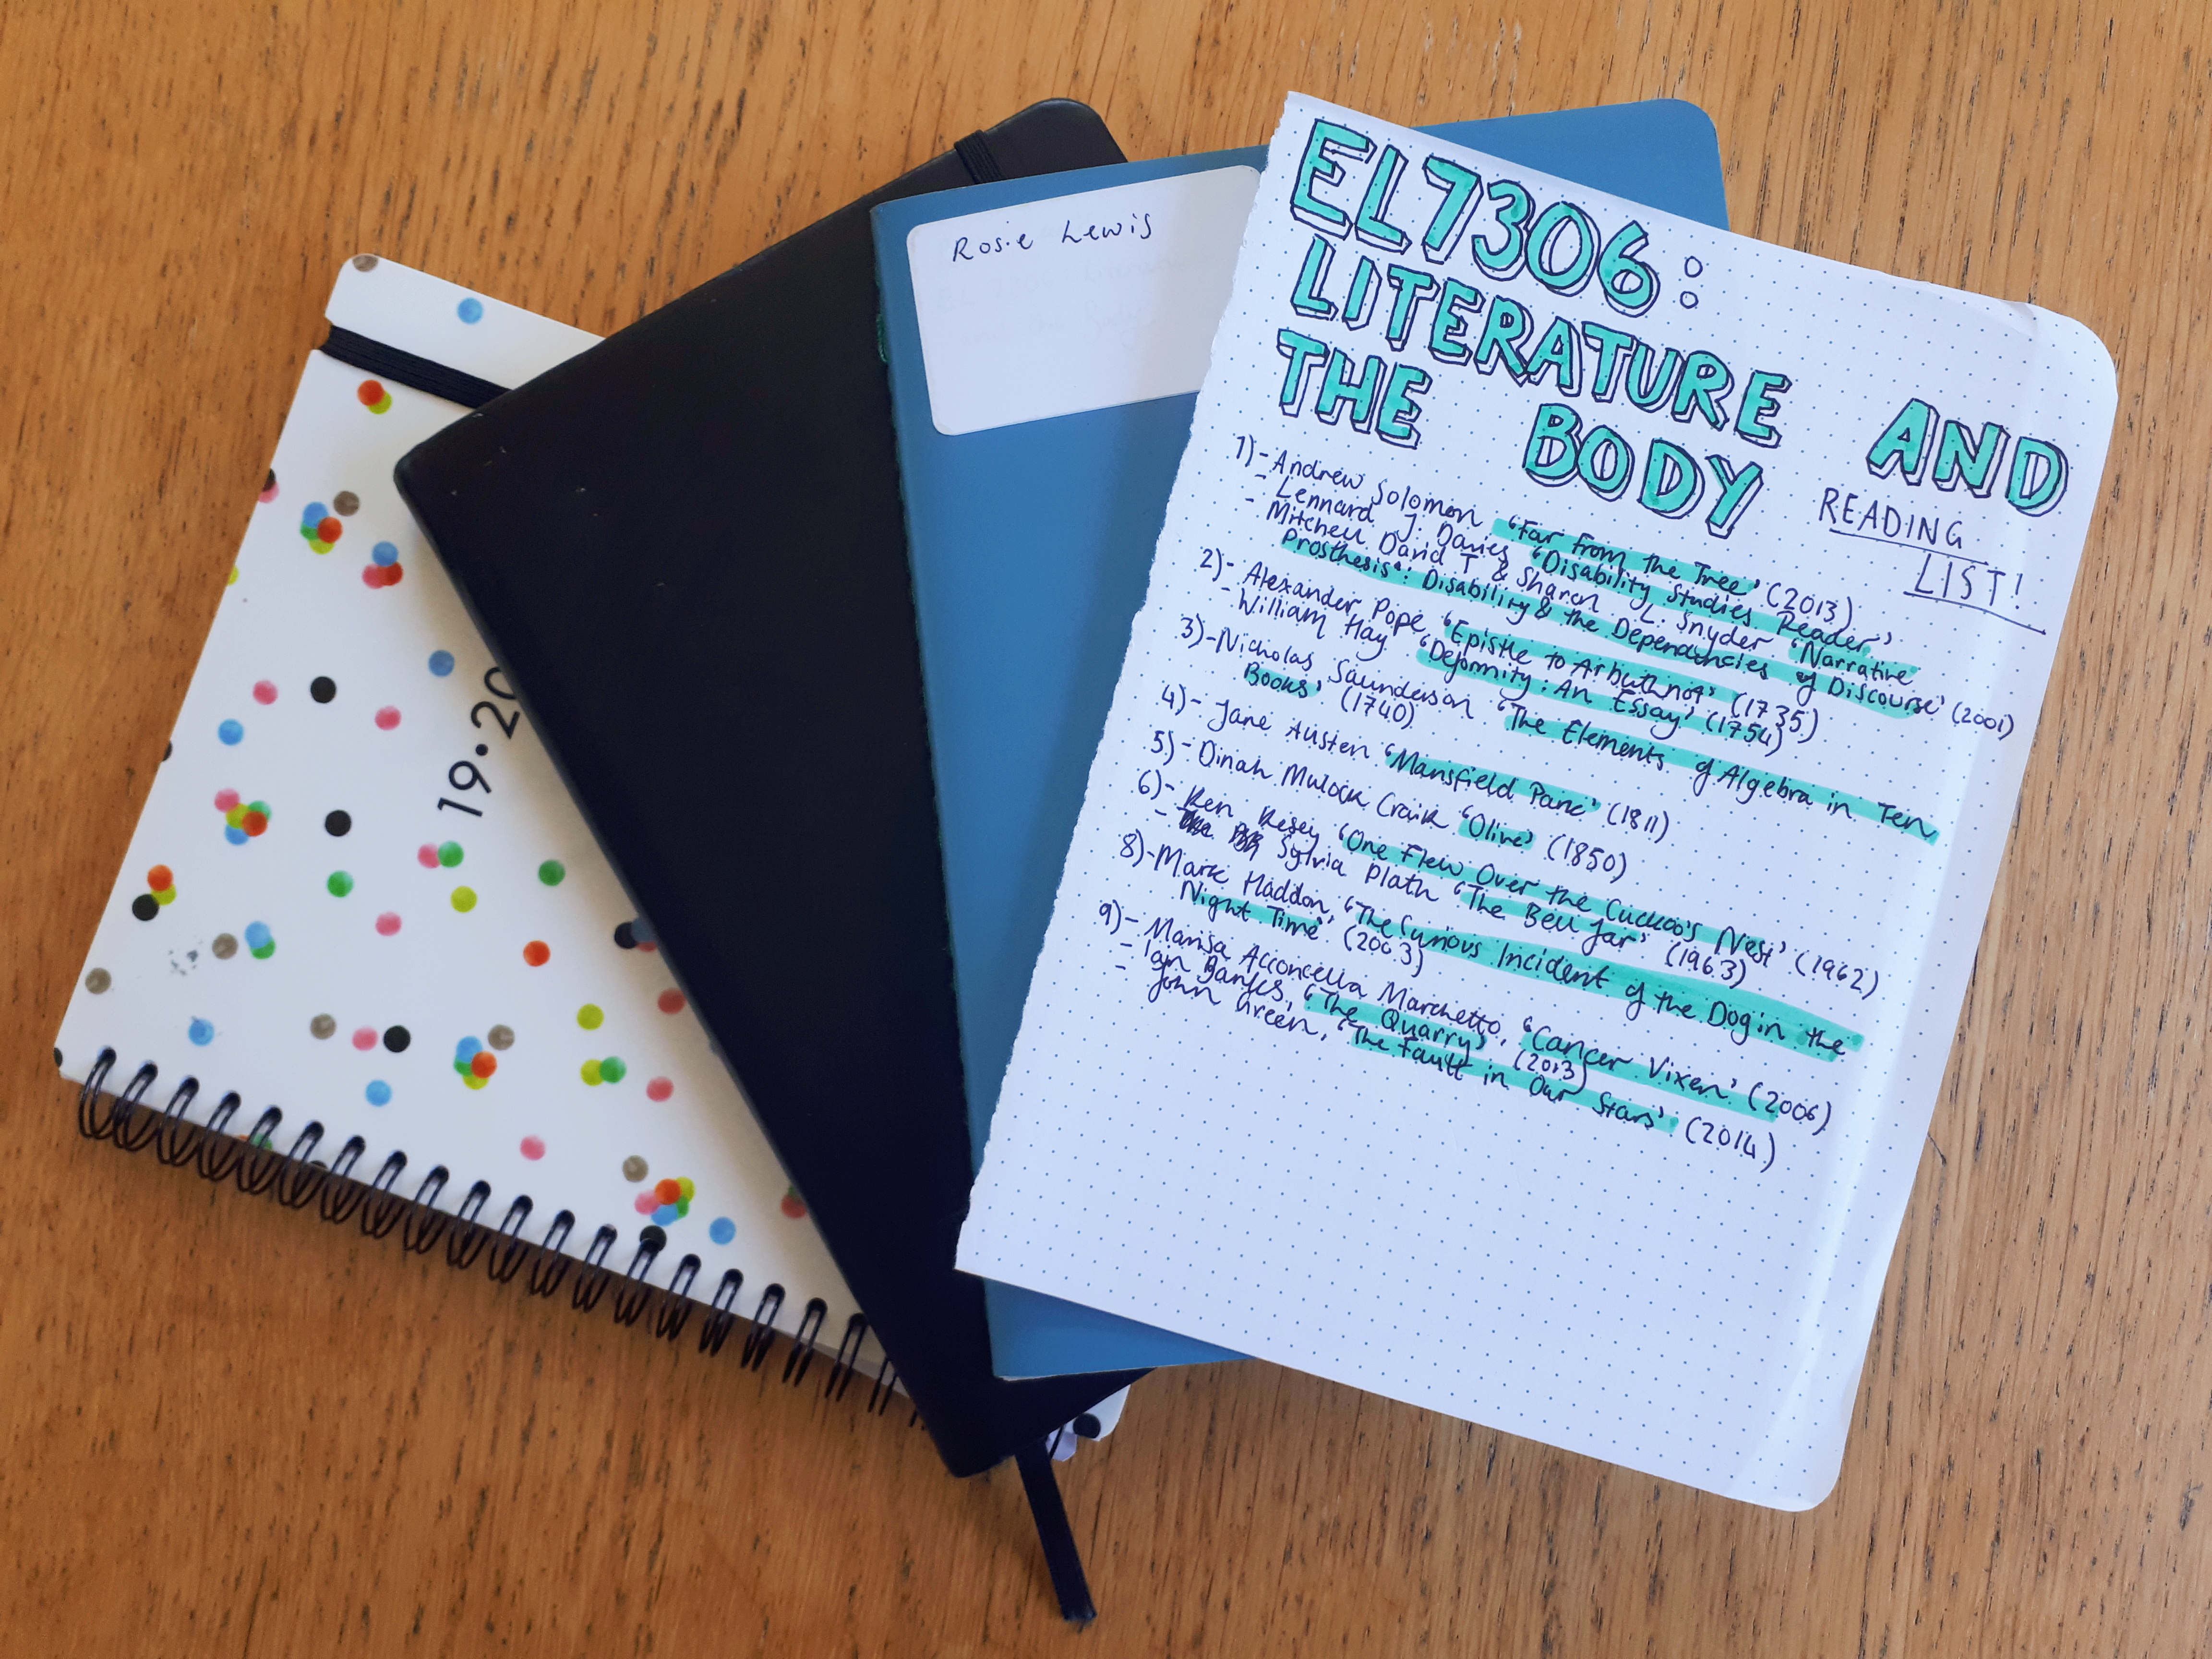 19.20
Rosie Lewis
EL7306:
LITERATURE AND
THE BODY
READING
LIST!
1)- Andrew Solomon 'Far From the Tree' (2013)
- Lennard J. Davies 'Disability Studies Reader'
- Mitchell David T & Sharon L. Snyder 'Narrative
Prosthesis': Disability & the Dependancies of Discourse' (2001)
2)- Alexander Pope 'Epistle to Arbuthnot' (1735)
- William Hay 'Deformity: An Essay' (1754)
3)- Nicholas Saunderson 'The Elements of Algebra in Ten
Books' (1740)
4)- Jane Austen 'Mansfield Park' (1811)
5)- Dinah Mulock Craik 'Olive' (1850)
6)- Ken Kesey 'One Flew Over the Cuckoo's Nest' (1962)
- Sylvia Plath 'The Bell Jar' (1963)
8)- Mark Haddon, 'The Curious Incident of the Dog in the
Night Time' (2003)
9)- Marisa Acconcella Marchetto, 'Cancer Vixen' (2006)
- Ian Banks, 'The Quarry' (2013)
- John Green, 'The Fault in Our Stars' (2014)